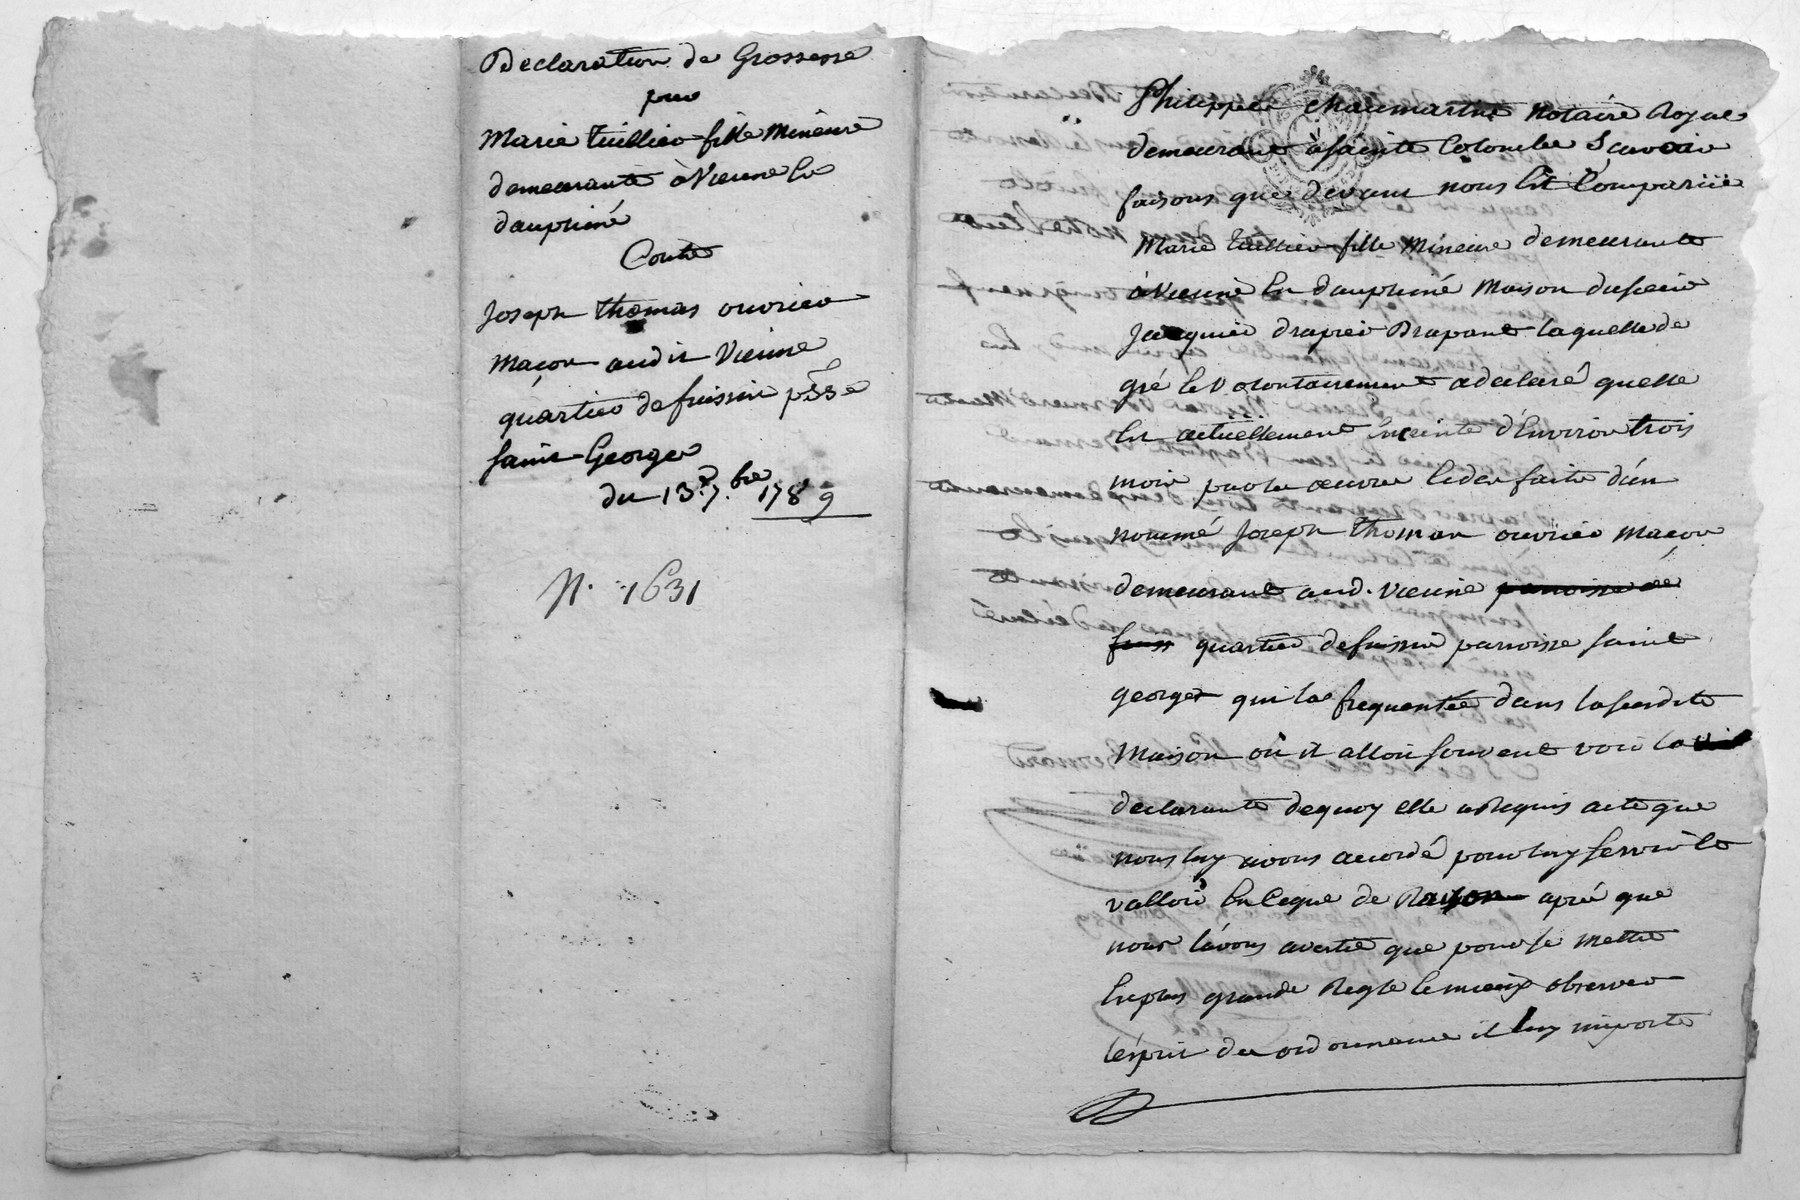 Declaration de Grossesse
par
Marie tuillier fille mineure
demeurante à Vienne en
dauphiné
Contre
Joseph thomas ouvrier
maçon audit Vienne
quartier de fuissin psse
saint George
du 13e. 7.bre 1789
N. 1631
Philippe chaumartin notaire Royal
demeurant à sainte Colombe Scavoir
faisons que devant nous est Comparüe
Marie tuillier fille mineure demeurante
à Vienne en dauphiné maison du sieur
Jacquier drapier Drapant laquelle de
gré et volontairement a declaré quelle
est actuellement enceinte d'Environ trois
mois par les œuvres et du fait d'un
nommé Joseph thomas ouvrier maçon
demeurant aud. vienne parroisse de
fuiss quartier de fuissin parroisse saint
george qui la frequentée dans la susdite
maison où il alloit souvent voir la
declarante de quoy elle a Requis acte que
nous luy avons accordé pour luy servir et
valloir en Ce que de Raison aprés que
nous l'avons avertie que pour se mettre
en plus grande Regle et mieux observer
l'esprit des ordonnances il luy importe